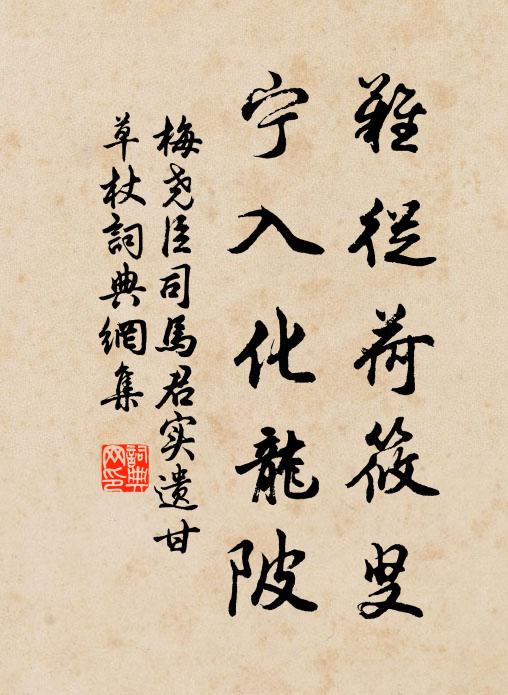 難從荷筱叟
宁入化龍陂
梅尧臣司馬君实遗甘
草杖詞典網集
詞典网印